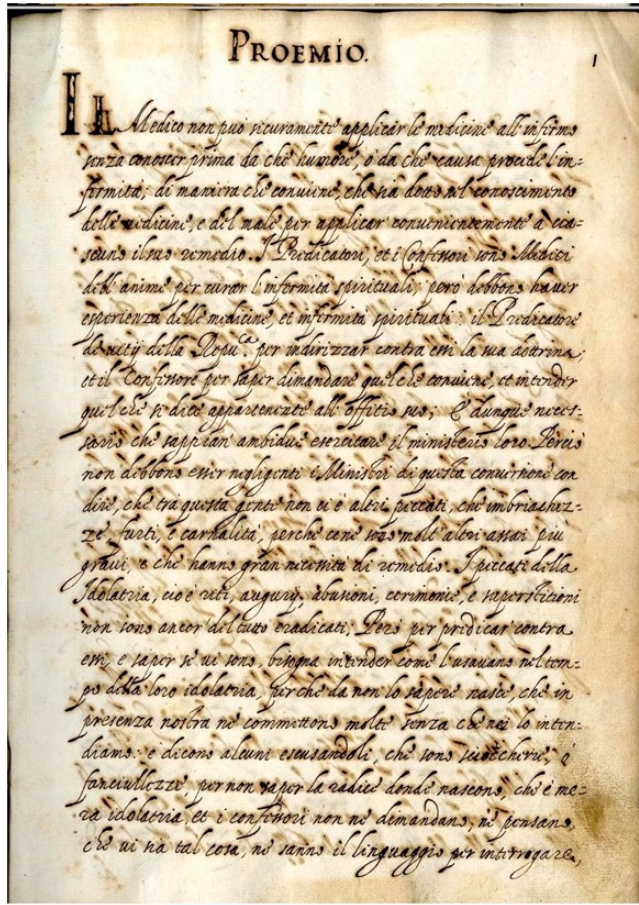 PROEMIO.
1
IL Medico non può sicuramente applicar le medicine all'infermo
senza conoscer prima da che humore, o da che causa procede l'in=
fermità; di maniera che conviene, che sia dotto nel conoscimento
delle medicine, e del male per applicar convenientemente à cia=
scuno il suo remedio. I Predicatori, et i Confessori sono Medici
dell'anime per curar l'infermità spirituali; però debbono haver
esperienza delle medicine, et infermità spirituali: il Predicatore
de vitij della Repu.ca per indirizzar contra essi la sua dottrina;
et il Confessore per saper dimandare quel che conviene, et intender
quel che si dice appartenente all'offitio suo; È dunque neces=
sario che sappian ambidue esercitare il ministerio loro. Perciò
non debbono esser negligenti i Ministri di questa conversione con
dire, che trà questa gente non ci è altri peccati, che imbriachez=
ze furti, e carnalità, perche cene sono molt'altri assai più
gravi, e che hanno gran necessità di remedio. I peccati della
Idolatria, cioè riti, augurij, abusioni, cerimonie, e superstitioni
non sono ancor del tutto eradicati; Però per predicar contra
essi, e saper se vi sono, bisogna intender come l'usavano nel tem=
po della loro idolatria, perche da non lo sapere nasce, che in
presenza nostra ne committono molte senza che noi lo inten=
diamo: e dicono alcuni escusandoli, che sono sciocherie, ò
fanciullezze per non saper la radice donde nascono, che è me=
ra idolatria, et i confessori non ne dimandano, nè pensano,
che vi sia tal cosa, nè sanno il linguaggio per interrogare,